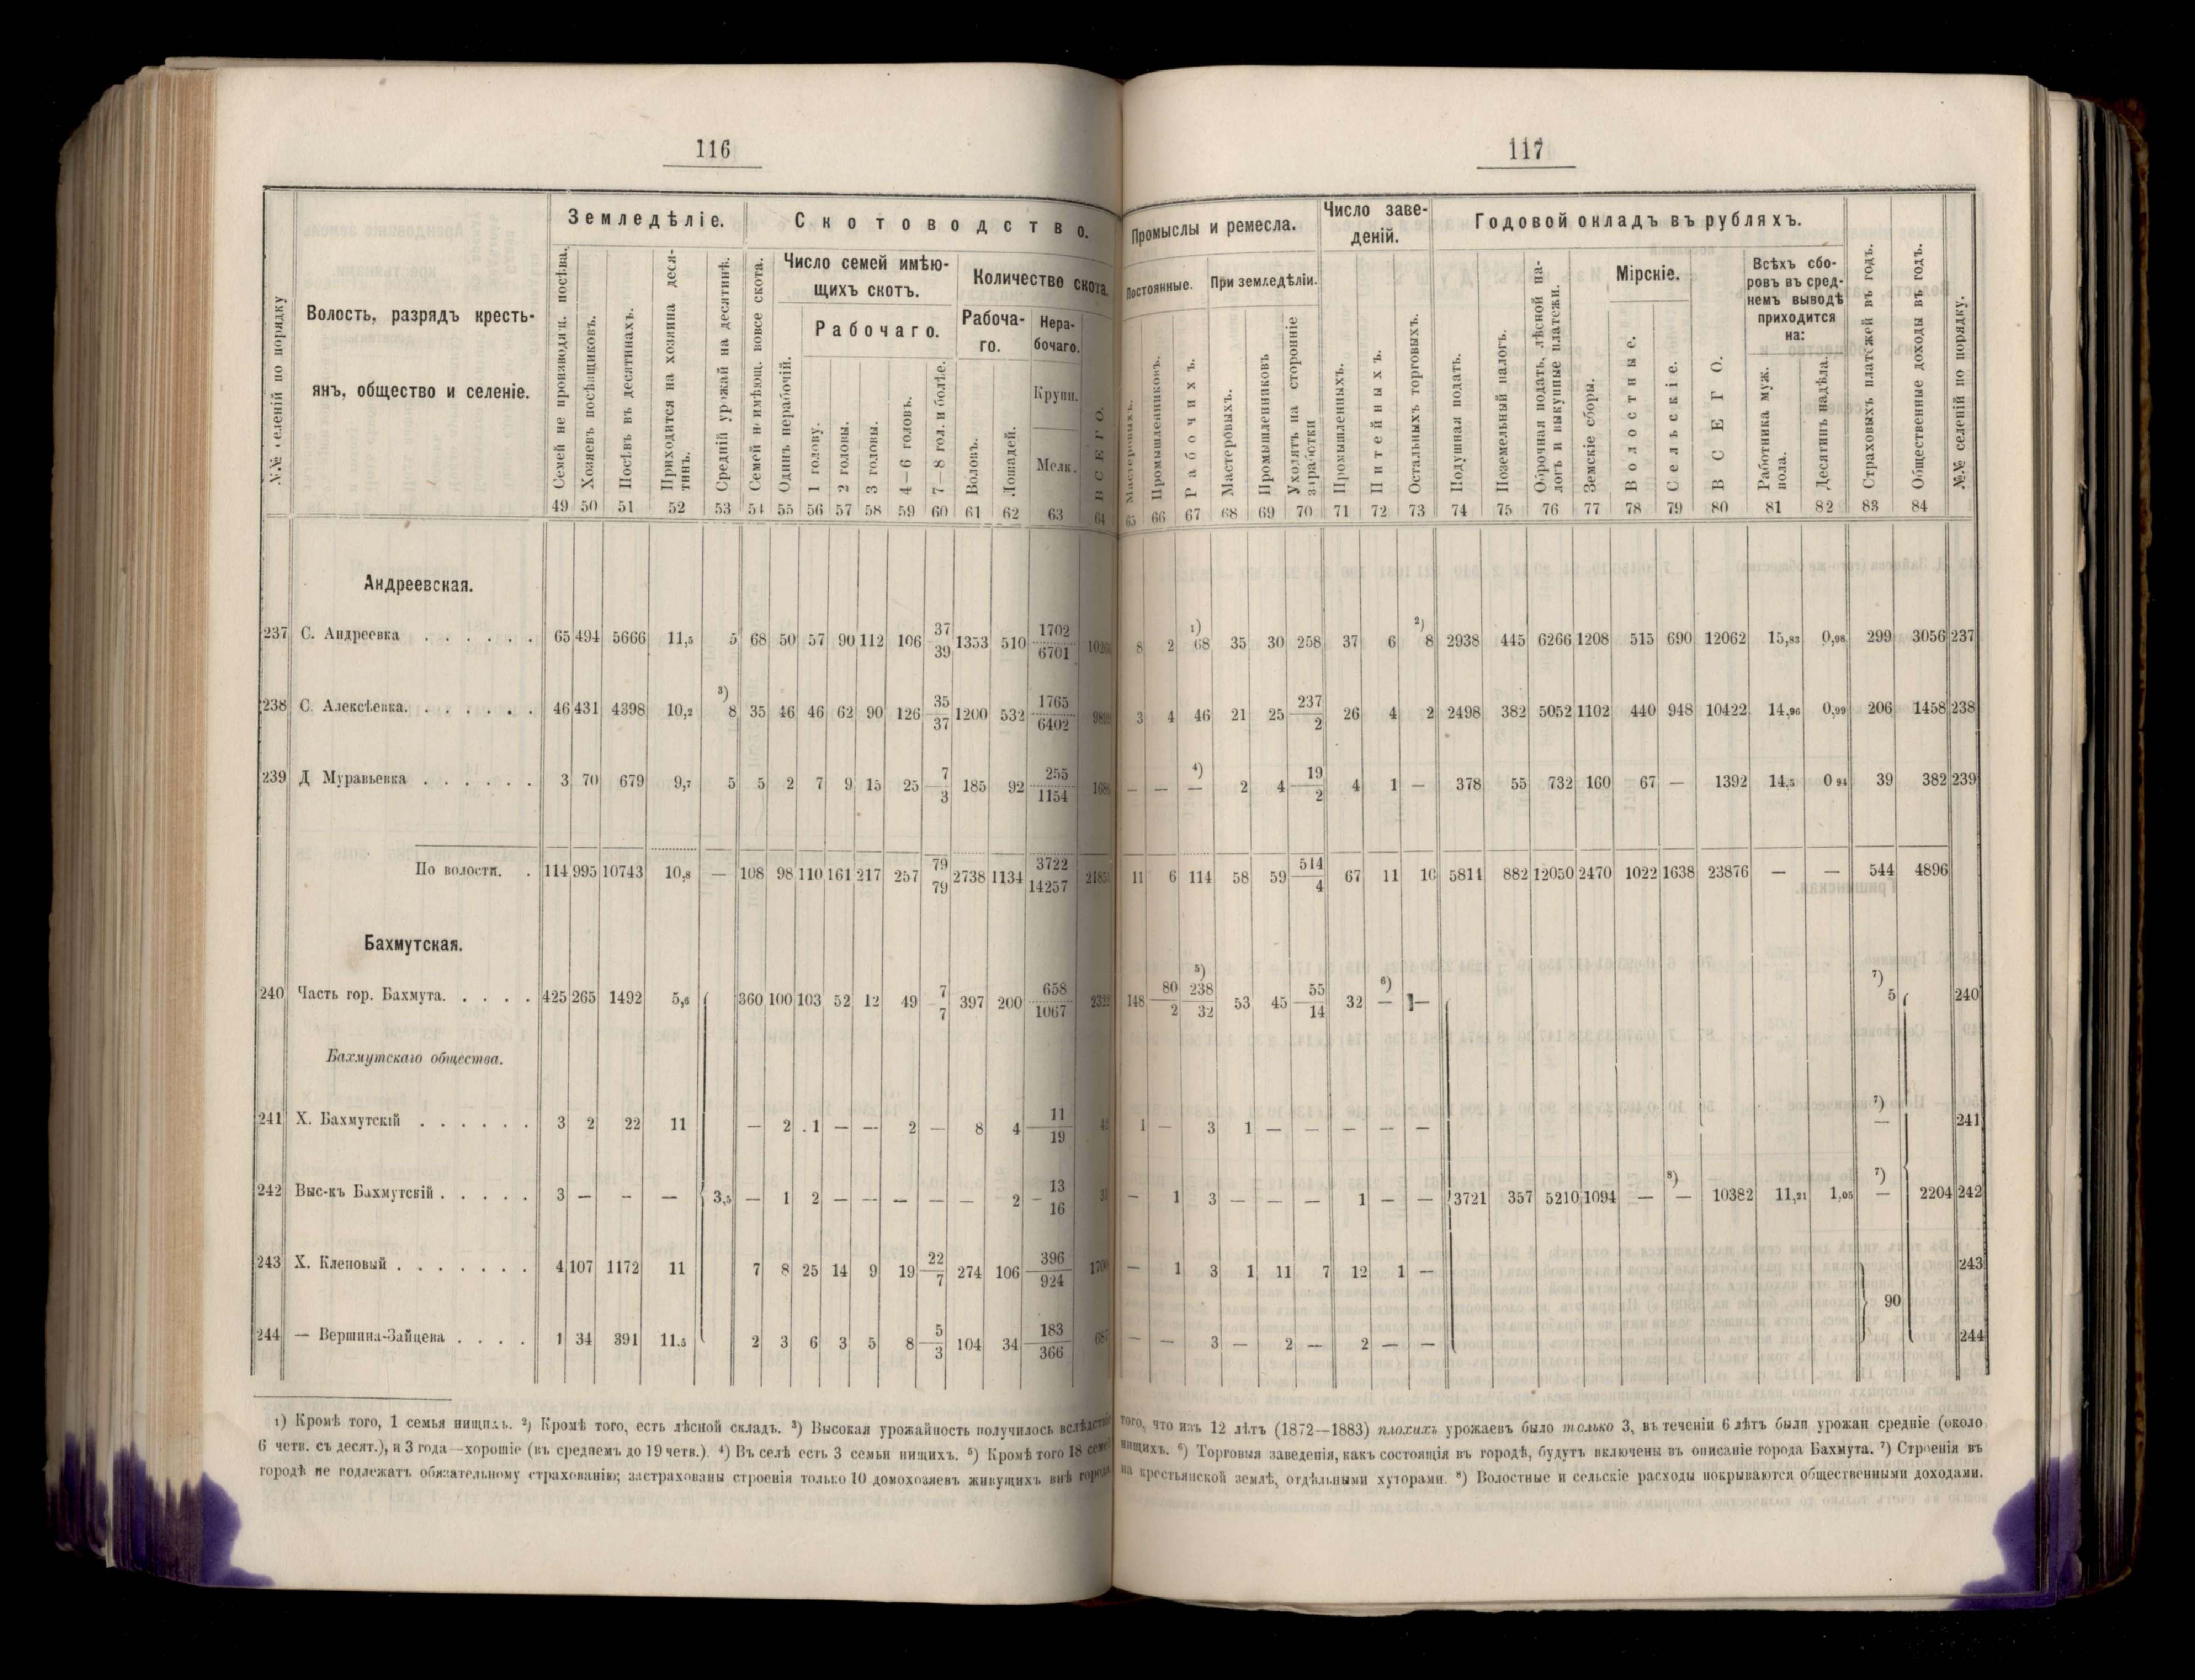 116
Земледѣліе. Скотоводство.
№№ селеній по порядку
Волость, разрядъ кресть-
янъ, общество и селеніе.
Семей не производящ. посѣва.
Хозяевъ посѣвщиковъ.
Посѣвъ въ десятинахъ.
Приходится на хозяина деся-
тинъ.
Средній урожай на десятинѣ.
Семей не имѣющ. вовсе скота.
Число семей имѣю-
щихъ скотъ.
Одинъ нерабочій.
Рабочаго.
1 голову.
2 головы.
3 головы.
4—6 головъ.
7—8 гол. и болѣе.
Количество скота.
Рабоча-
го.
Воловъ.
Лошадей.
Нера-
бочаго.
Крупн.
Мелк.
ВСЕГО.
49 50 51 52 53 54 55 56 57 58 59 60 61 62 63 64
Андреевская.
237 С. Андреевка . . . . . . 65 494 5666 11,5 5 68 50 57 90 112 106 37/39 1353 510 1702/6701
238 С. Алексѣевка. . . . . . . 46 431 4398 10,2 ³) 8 35 46 46 62 90 126 35/37 1200 532 1765/6402
239 Д Муравьевка . . . . . . 3 70 679 9,7 5 5 2 7 9 15 25 7/3 185 92 255/1154
По волости. . 114 995 10743 10,8 — 108 98 110 161 217 257 79/79 2738 1134 3722/14257
Бахмутская.
240 Часть гор. Бахмута. . . . . 425 265 1492 5,6 360 100 103 52 12 49 7/7 397 200 658/1067
Бахмутскаго общества.
241 Х. Бахмутскій . . . . . . 3 2 22 11 — 2 1 — — 2 — 8 4 11/19
242 Выс-къ Бахмутскій . . . . . 3 — — — 3,5 — 1 2 — — — — — 2 13/16
243 Х. Кленовый . . . . . . . 4 107 1172 11 7 8 25 14 9 19 22/7 274 106 396/924
244 — Вершина-Зайцева . . . . 1 34 391 11.5 2 3 6 3 5 8 5/3 104 34 183/366
¹) Кромѣ того, 1 семья нищихъ. ²) Кромѣ того, есть лѣсной складъ. ³) Высокая урожайность получилось вслѣдствіе
6 четв. съ десят.), и 3 года—хорошіе (въ среднемъ до 19 четв.). ⁴) Въ селѣ есть 3 семьи нищихъ. ⁵) Кромѣ того 18 семей
городѣ не подлежатъ обязательному страхованію; застрахованы строенія только 10 домохозяевъ живущихъ внѣ города,
117
Промыслы и ремесла. Число заве-
деній. Годовой окладъ въ рубляхъ.
Постоянные.
Мастеровыхъ.
Промышленниковъ.
Рабочихъ.
При земледѣліи.
Мастеровыхъ.
Промышленниковъ
Уходятъ на сторонніе
заработки
Промышленныхъ.
Питейныхъ.
Остальныхъ торговыхъ.
Подушная подать.
Поземельный налогъ.
Оброчная подать, лѣсной на-
логъ и выкупные платежи.
Земскіе сборы.
Мірскіе.
Волостные.
Сельскіе.
ВСЕГО.
Всѣхъ сбо-
ровъ въ сред-
немъ выводѣ
приходится
на:
Работника муж.
пола.
Десятинъ надѣла.
Страховыхъ платежей въ годъ.
Общественные доходы въ годъ.
№№ селеній по порядку.
65 66 67 68 69 70 71 72 73 74 75 76 77 78 79 80 81 82 83 84
8 2 ¹) 68 35 30 258 37 6 ²) 8 2938 445 6266 1208 515 690 12062 15,83 0,98 299 3056 237
3 4 46 21 25 237/2 26 4 2 2498 382 5052 1102 440 948 10422 14,96 0,99 206 1458 238
— — ⁴) — 2 4 19/2 4 1 — 378 55 732 160 67 — 1392 14,5 0 94 39 382 239
11 6 114 58 59 514/4 67 11 10 5814 882 12050 2470 1022 1638 23876 — — 544 4896
148 80/2 ⁵) 238/32 53 45 55/14 32 ⁶) — — ⁷) 5 240
1 — 3 1 — — — — — ⁷) — 241
— 1 3 — — — 1 — — 3721 357 5210 1094 — ⁸) — 10382 11,21 1,05 ⁷) — 2204 242
— 1 3 1 11 7 12 1 — 243
90
— — 3 — 2 — 2 — — 244
того, что изъ 12 лѣтъ (1872—1883) плохихъ урожаевъ было только 3, въ теченіи 6 лѣтъ были урожаи средніе (около
нищихъ. ⁶) Торговыя заведенія, какъ состоящія въ городѣ, будутъ включены въ описаніе города Бахмута. ⁷) Строенія въ
на крестьянской землѣ, отдѣльными хуторами. ⁸) Волостные и сельскіе расходы покрываются общественными доходами.